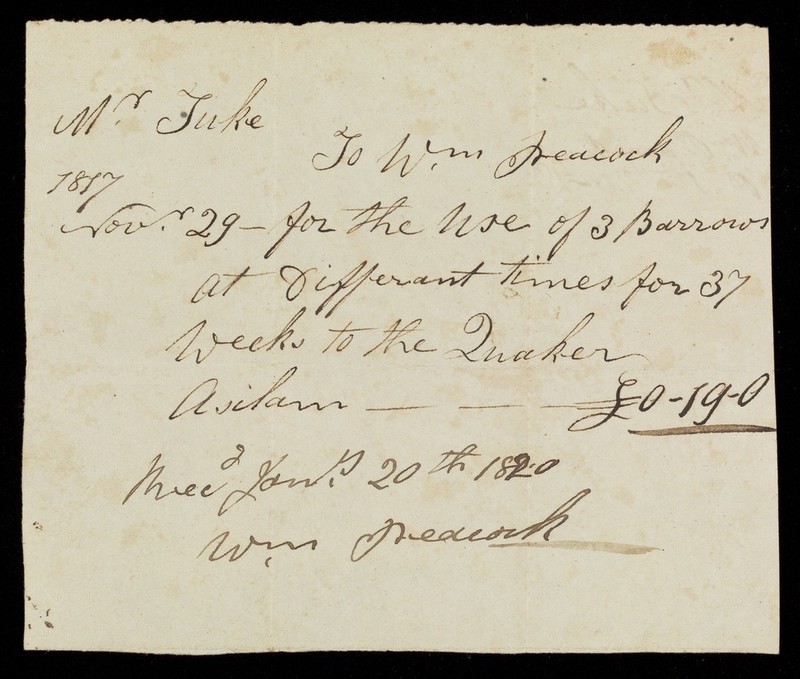 Mr Tuke
To Wm Peacock
1817
Novr 29 - for the Use of 3 Barrows
at Differant times for 37
Weeks to the Quaker
Asilam — — — £0-19-0
Recd Jany 20th 1820
Wm Peacock